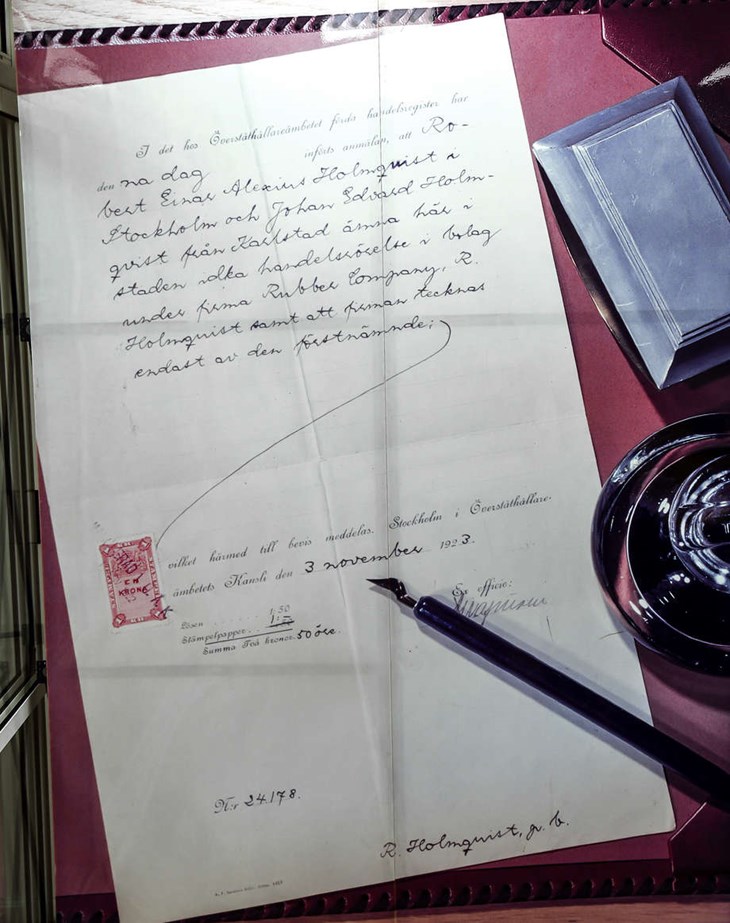 I det hos Överståthållareämbetet förda handelsregister har
den na dag införts anmälan, att Ro-
bert Einar Alexius Holmquist i
Stockholm och Johan Edvard Holm-
qvist från Karlstad ämna här i
staden idka handelsrörelse i bolag
under firma Rubber Company, R.
Holmquist samt att firman tecknas
endast av den förstnämnde;
vilket härmed till bevis meddelas. Stockholm i Överståthållare-
ämbetets Kansli den 3 november 1923.
EN
KRONA
Ex officio:
Lösen 1:50
Stämpelpapper 1:—
Summa Två kronor 50 öre.
N:r 24.178.
R. Holmquist, g. b.